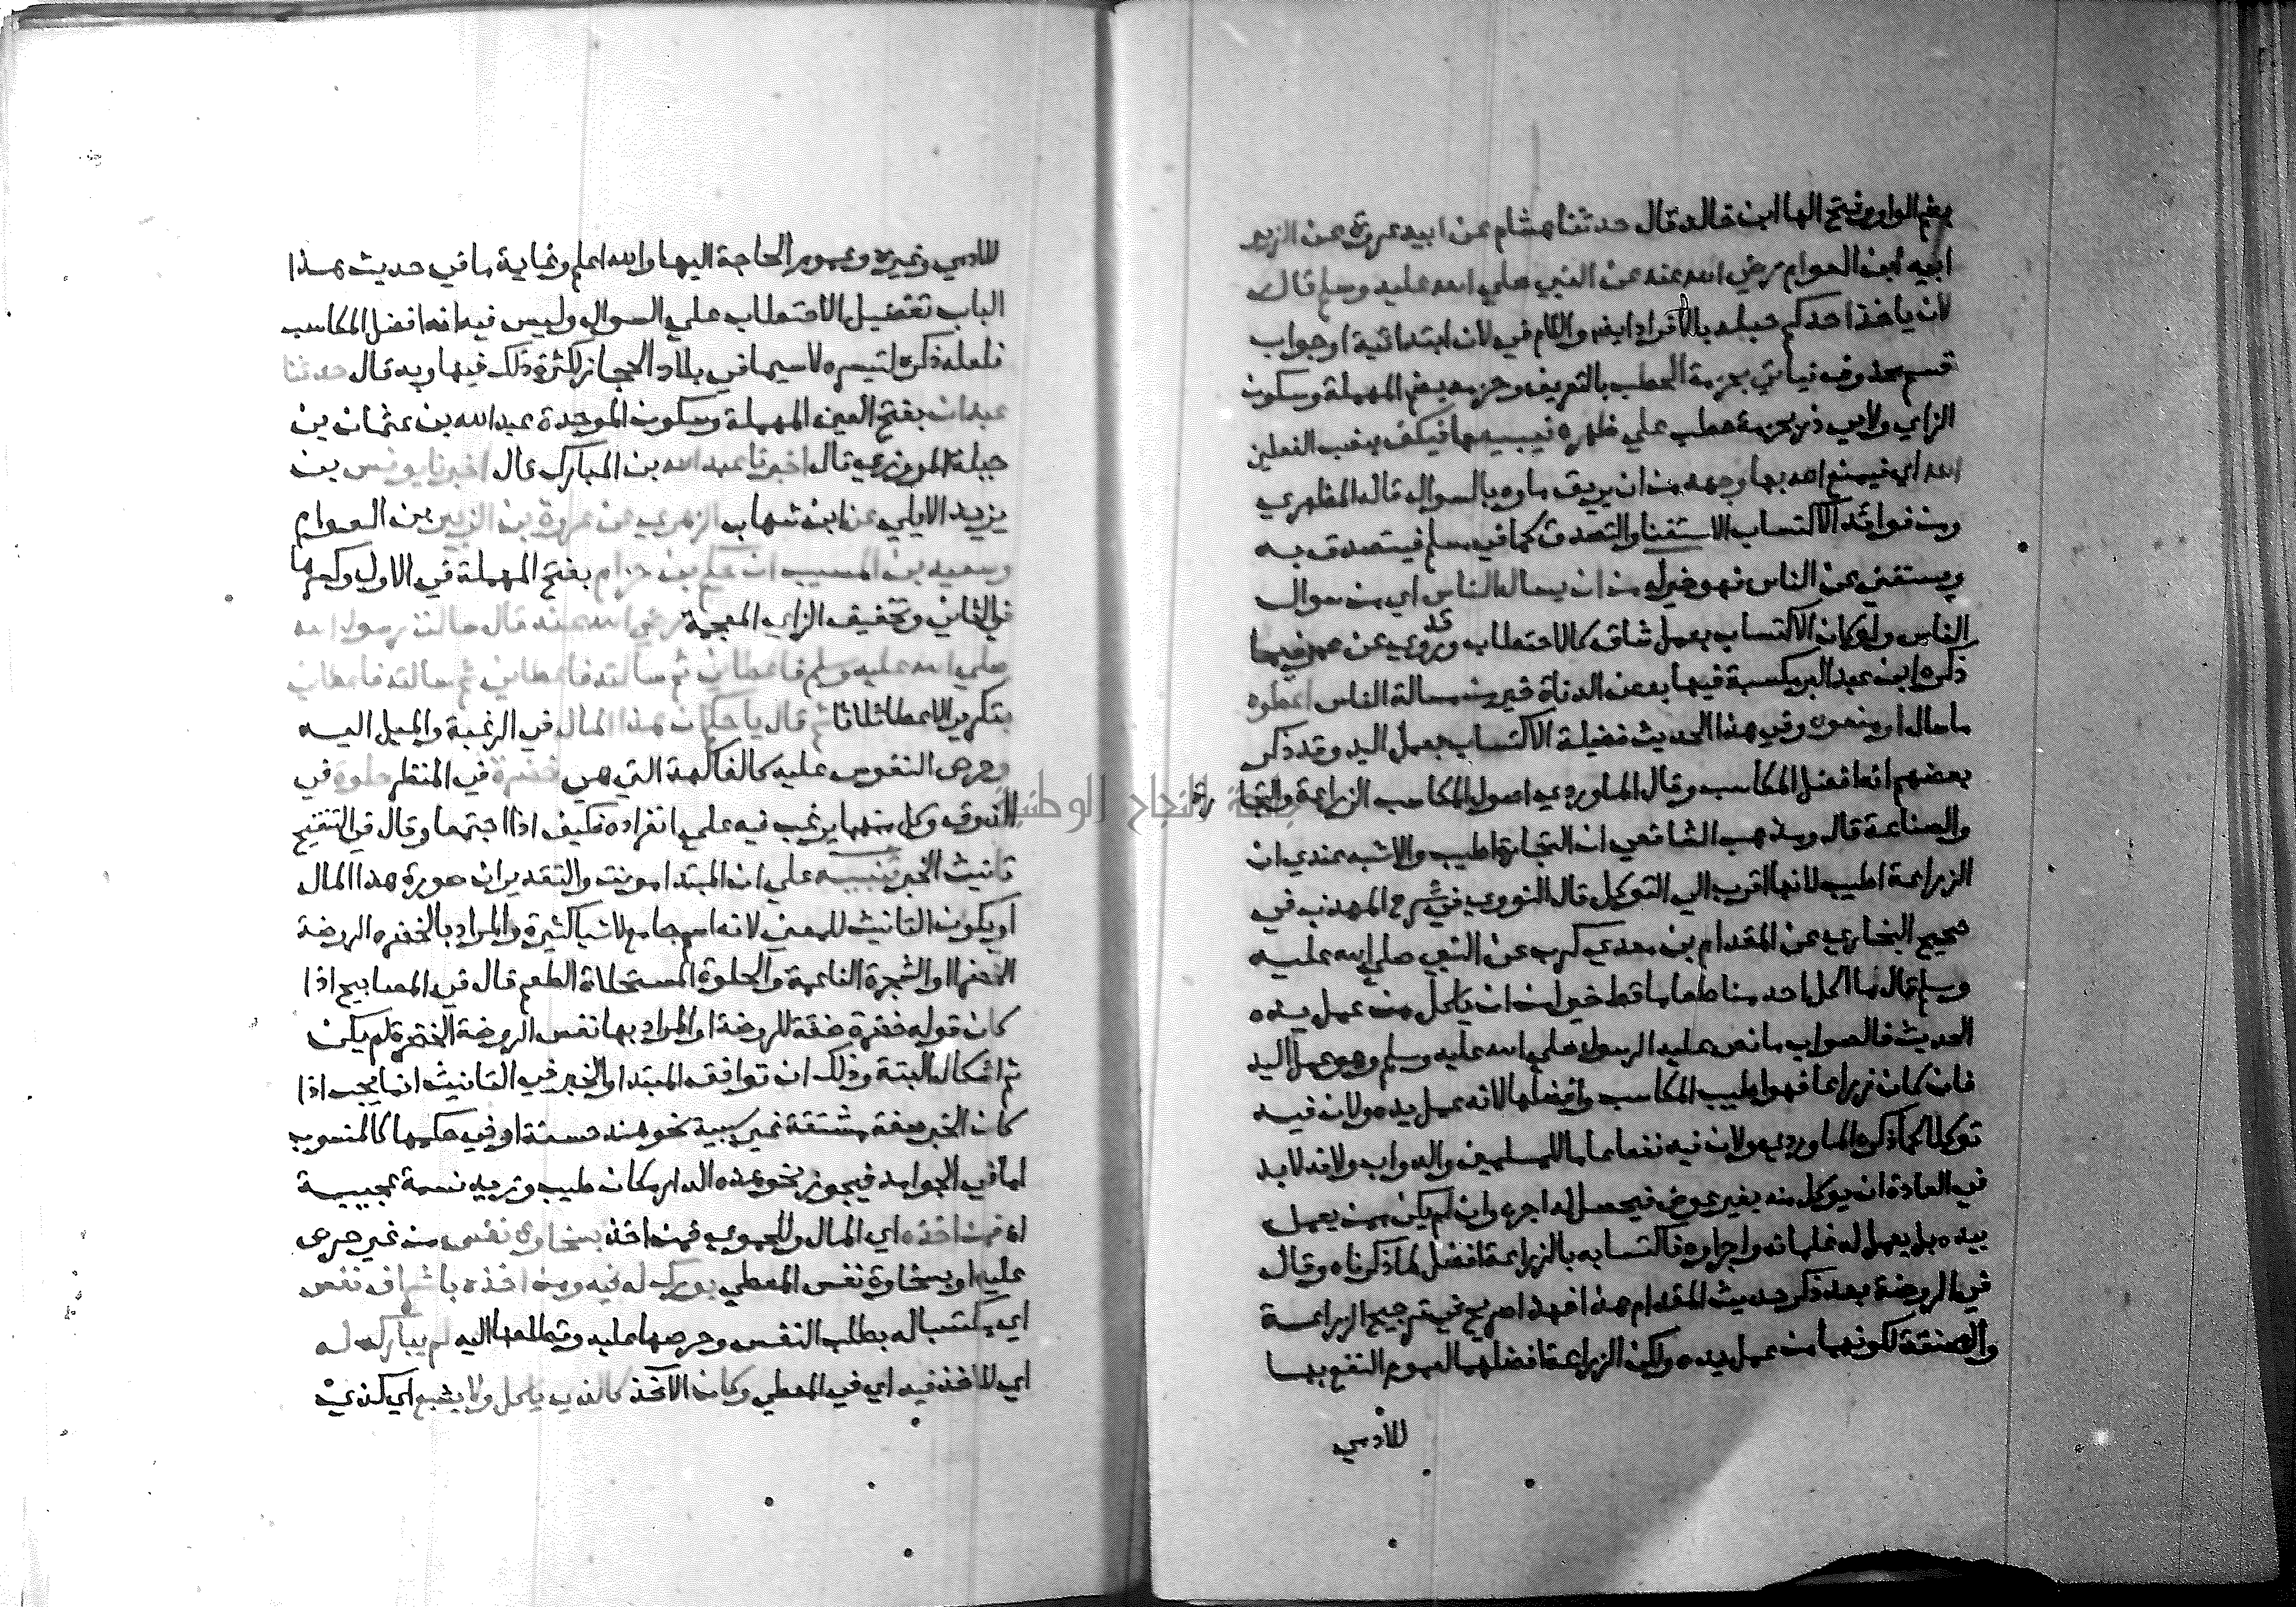 بضم الواو وفتح الها ابن خالد قال حدثنا هشام عن ابيه عروة عن الزبير
ابيه ابن العوام رضي الله عنه عن النبي صلي الله عليه وسلم قال
لان ياخذ احدكم حبله بالافراد ايضا واللام في لان ابتدائية او جواب
قسم محذوف فياتي بحزمة الحطب بالتعريف وحزمه بضم المهملة وسكون
الزاي ولابي ذر بحزمة حطب علي ظهره فيبيعها فيكف بنصب الفعلين
الله اي فيمنع الله بها وجهه من ان يريق ماوه بالسوال قاله المظهري
ومن فوائد الاكتساب الاستغنا والتصدق كما في مسلم فيتصدق به
ويستغني عن الناس فهو خير له من ان يسال الناس اي من سوال
الناس ولو كان الاكتساب بعمل شاق كالاحتطاب وقد روي عن عمر فيما
ذكره ابن عبد البر مكسبة فيها بعض الدناة خير من مسالة الناس اعطوه
ما سال او منعوه وفي هذا الحديث فضيلة الاكتساب بعمل اليد وقد ذكر
بعضهم انه افضل المكاسب وقال الماوردي اصول المكاسب الزراعة والتجارة
والصناعة قال ومذهب الشافعي ان التجارة اطيب والاشبه عندي ان
الزراعة اطيب لانها اقرب الي التوكل قال النووي في شرح المهذب في
صحيح البخاري عن المقدام بن معدي كرب عن النبي صلي الله عليه
وسلم قال ما اكل احد منا طعاما قط خير من ان ياكل من عمل يده
الحديث فالصواب ما نص عليه الرسول صلي الله عليه وسلم وهو عمل اليد
فان كان زراعا فهو اطيب المكاسب وافضلها لانه عمل يده ولان فيه
توكلا كما ذكره الماوردي ولان فيه نفعا عاما للمسلمين والدواب ولانه لابد
في العادة ان يوكل منه بغير عوض فيحصل له اجره وان لم يكن ممن يعمل
بيده بل يعمل له غلمانه واجراوه فاكتسابه بالزراعة افضل لما ذكرناه وقال
في الروضة بعد ذكر حديث المقدام هذا فهذا صريح في ترجيح الزراعة
والصنعة لكونهما من عمل يده ولكن الزراعة افضلهما لعموم النفع بها
للادمي
للادمي وغيره وعموم الحاجة اليها والله اعلم وغاية ما في حديث هذا
الباب تفضيل الاحتطاب علي السوال وليس فيه انه افضل المكاسب
فلعله ذكره لتيسره لاسيما في بلاد الحجاز لكثرة ذلك فيها وبه قال حدثنا
عبدان بفتح العين المهملة وسكون الموحدة عبد الله بن عثمان بن
جبلة المروزي قال اخبرنا عبد الله بن المبارك قال اخبرنا يونس بن
يزيد الايلي عن ابن شهاب الزهري عن عروة بن الزبير بن العوام
وسعيد بن المسيب ان حكيم بن حزام بفتح المهملة في الاول وكسرها
في الثاني وتخفيف الزاي المعجمة رضي الله عنه قال سالت رسول الله
صلي الله عليه وسلم فاعطاني ثم سالته فاعطاني ثم سالته فاعطاني
بتكرير الاعطا ثلاثا ثم قال يا حكيم ان هذا المال في الرغبة والميل اليه
وحرص النفوس عليه كالفاكهة التي هي خضرة في المنظر حلوة في
الذوق وكل منهما يرغب فيه علي انفراده فكيف اذا اجتمعا وقال في التنقيح
تانيث الخبر تنبيه علي ان المبتدا مونث والتقدير ان صورة هذا المال
او يكون التانيث للمعني لانه اسم جامع لاشيا كثيرة والمراد بالخضره الروضة
الخضرا او الشجرة الناعمة والحلوة المستحلاة الطعم قال في المصابيح اذا
كان قوله خضرة صفة للروضة او المراد بها نفس الروضة الخضرة لم يكن
ثم اشكال البتة وذلك ان توافق المبتدا والخبر في التانيث انما يجب اذا
كان الخبر صفة مشتقة غير سببية نحو هند حسنة او في حكمها كالمنسوب
اما في الجوامد فيجوز نحو هذه الدار مكان طيب وزيد نسمة عجيبة
اه فمن اخذه اي المال وللحموي فمن اخذ بسخاوة نفس من غير حرص
عليه او بسخاوة نفس المعطي بورك له فيه ومن اخذه باشراف نفس
اي مكتسبا له بطلب النفس وحرصها عليه وتطلعها اليه لم يبارك له
اي للاخذ فيه اي في المعطي وكان الآخذ كالذي ياكل ولا يشبع اي كذي